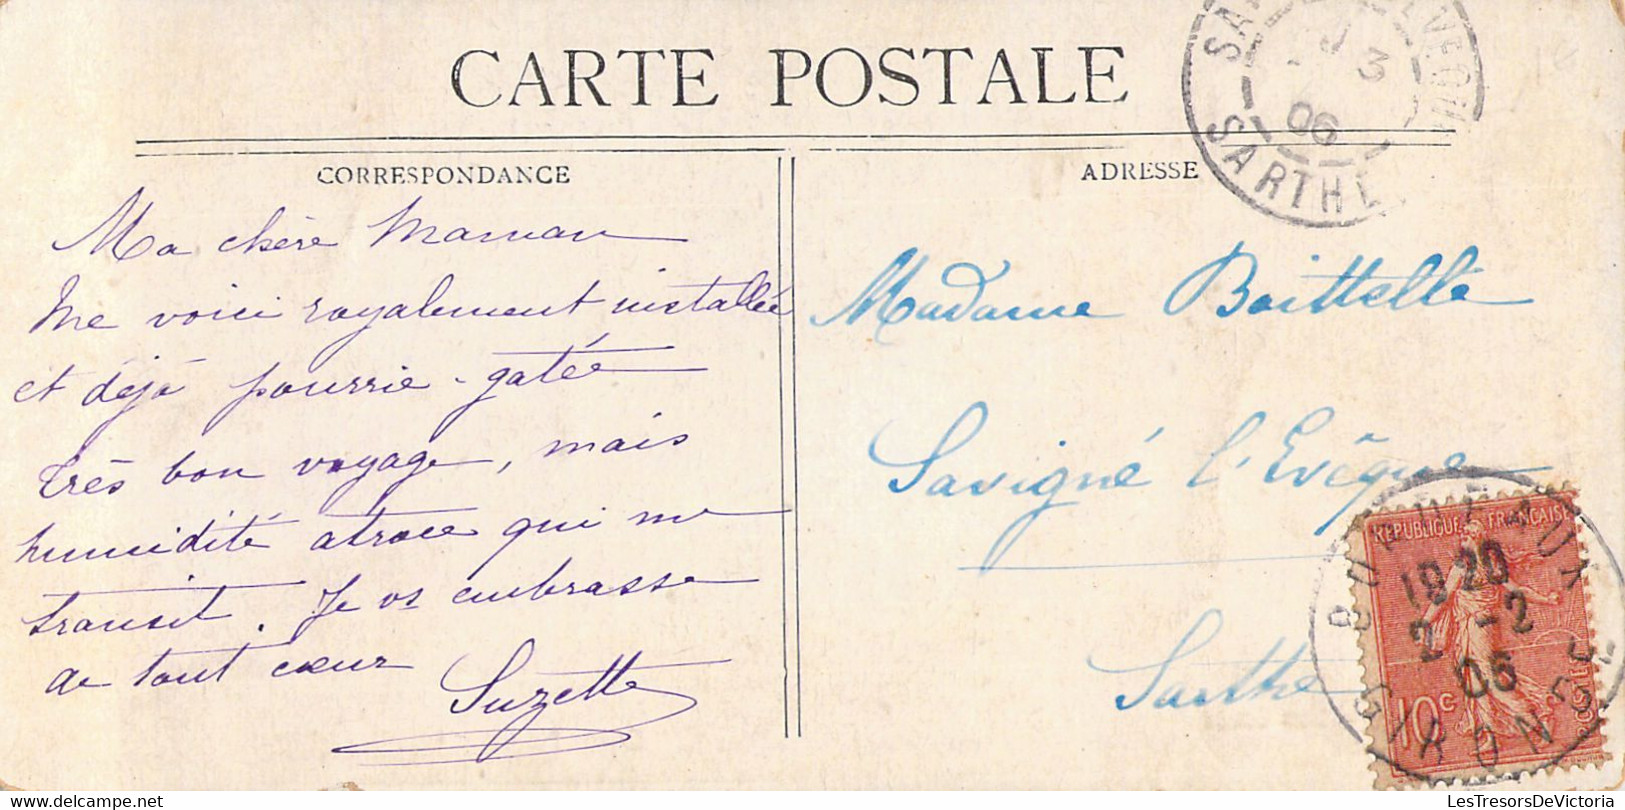 CARTE POSTALE
CORRESPONDANCE
Ma chère Maman
Me voici royalement installée
et déjà pourrie-gatée
très bon voyage, mais
humidité atroce qui me
transit. Je vs embrasse
de tout cœur
Suzette
ADRESSE
Madame Boittelle
Savigné l'Evêque
Sarthe
3
06
SARTHE
REPUBLIQUE FRANÇAISE
10c
19 20
2 -2
06
GIRONDE
www.delcampe.net
LesTresorsDeVictoria